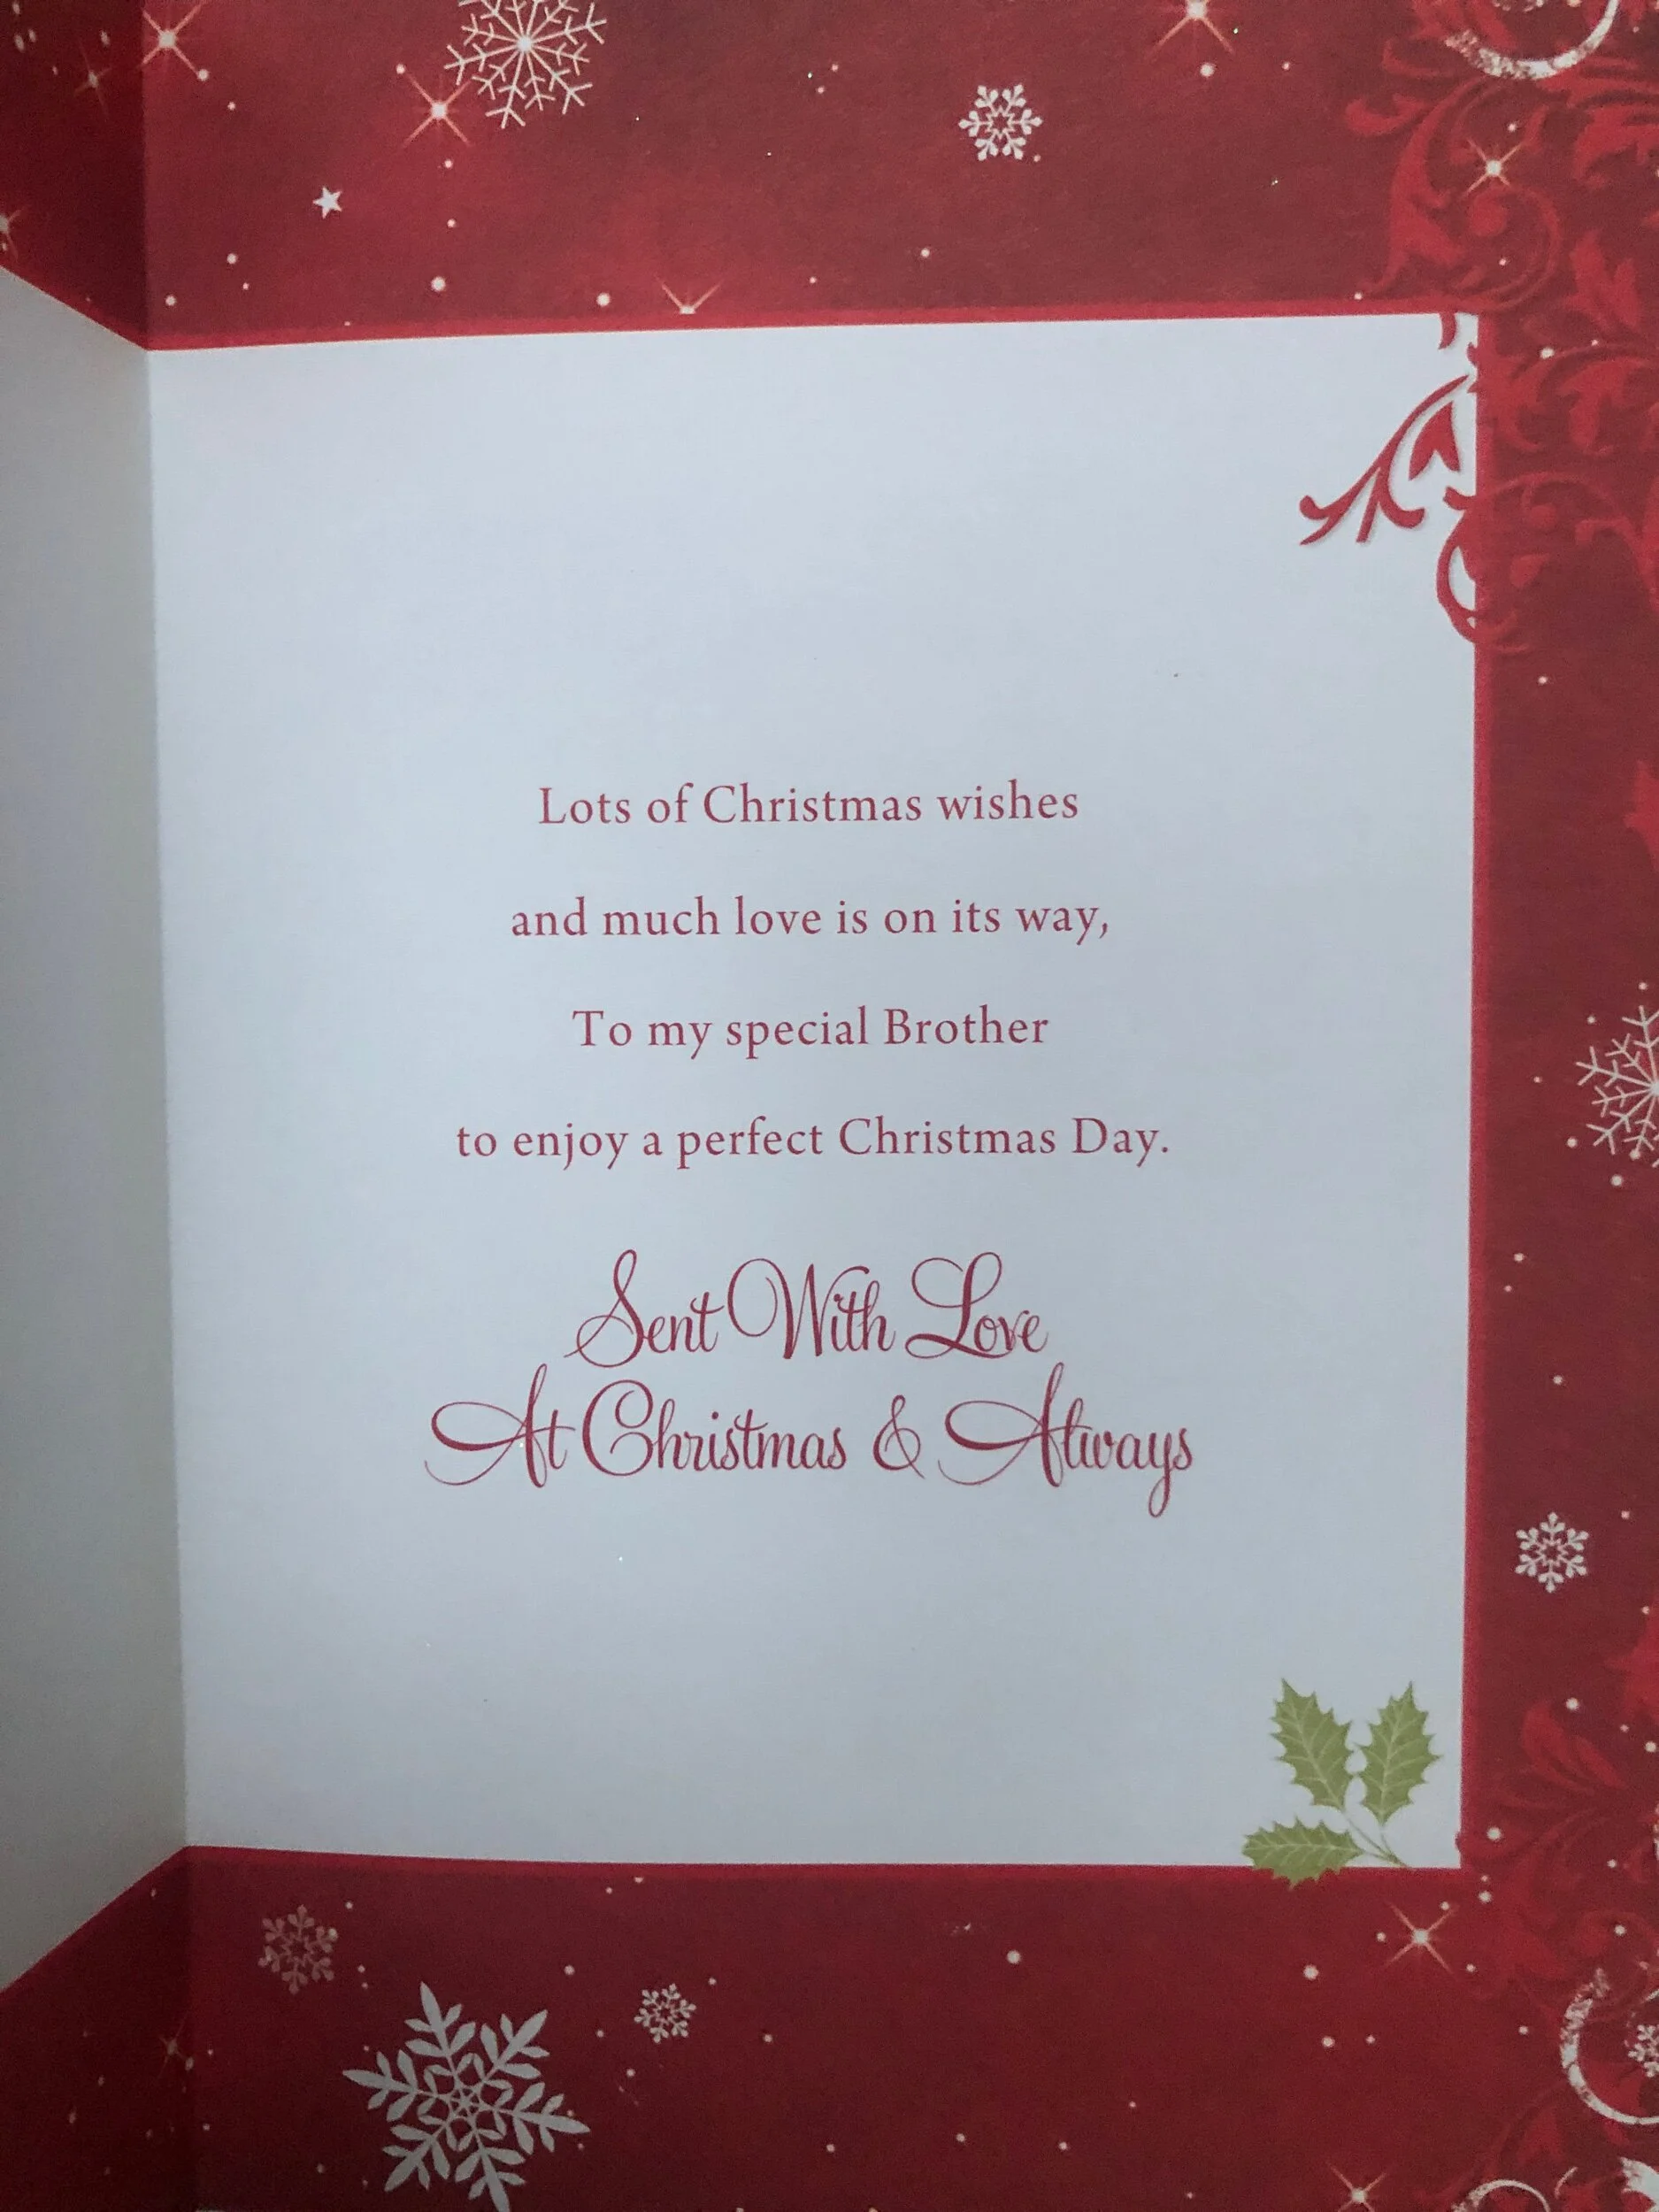 Lots of Christmas wishes
and much love is on its way,
To my special Brother
to enjoy a perfect Christmas Day.
Sent With Love
At Christmas & Always